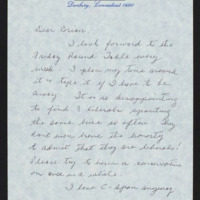 Danbury, Connecticut 06810
Dear Brian:
I look forward to the
Friday Round Table every
week. I plan my time around
it or tape it if I have to be
away. It is so disappointing
to find 3 liberals spouting
the same bias so often. They
don't even have the honesty
to admit that they are liberals!
Please try to have a conservative
on once in a while.
I love C-Span anyway